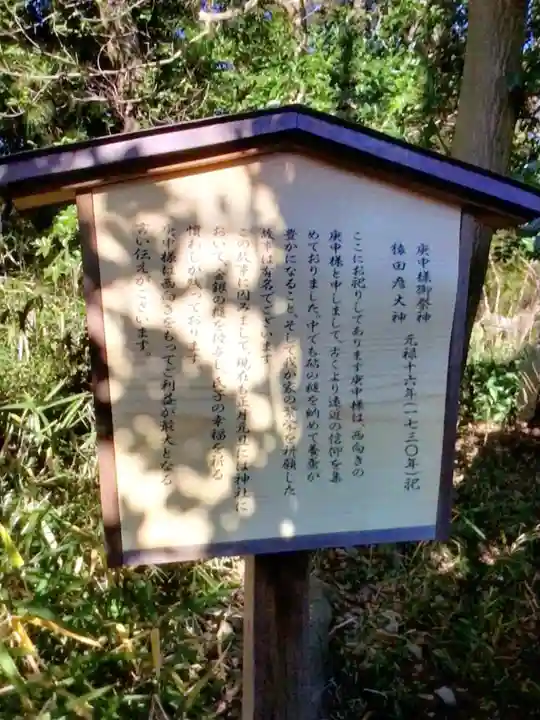 庚申様御祭神
猿田彦大神
元禄十六年(一七三〇年)記
ここにお祀りしてあります庚申様は、西向きの
庚申様と申しまして、古くより遠近の信仰を集
めておりました。中でも砧の槌を納めて養蚕が
豊かになること、そして我が家の繁栄を祈願した
故事は有名でございます
この故事に因みまして、現在も正月元旦には神社に
おいて、金銀の槌を授与し、氏子の幸福を祈る
慣わしが残っております
庚申様は西向きをもってご利益が最大となる
言い伝えがございます。